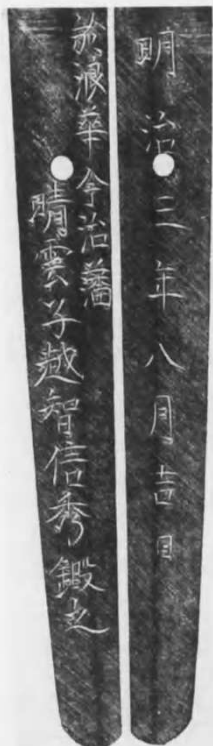 明治三年八月吉日
於浪華今治藩
晴雲子越智信秀鍛之